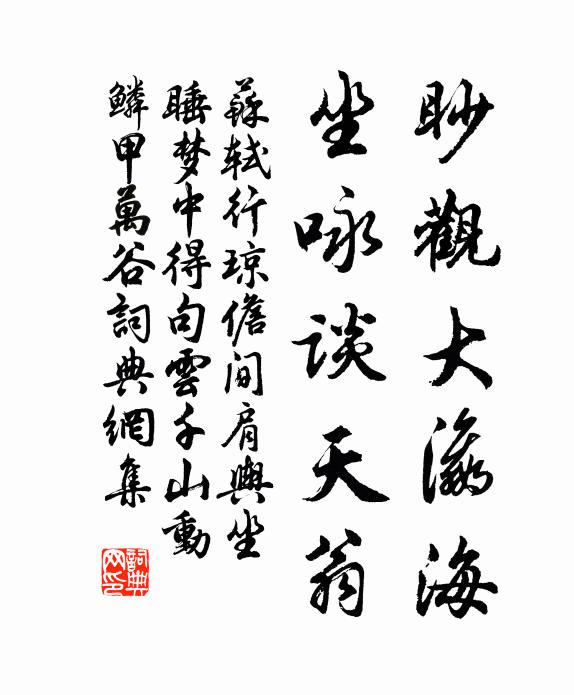 眇觀大瀛海
坐咏談天翁
蘇軾行琼儋间肩輿坐
睡梦中得句雲千山動
鱗甲萬谷詞典網集
詞典
网印